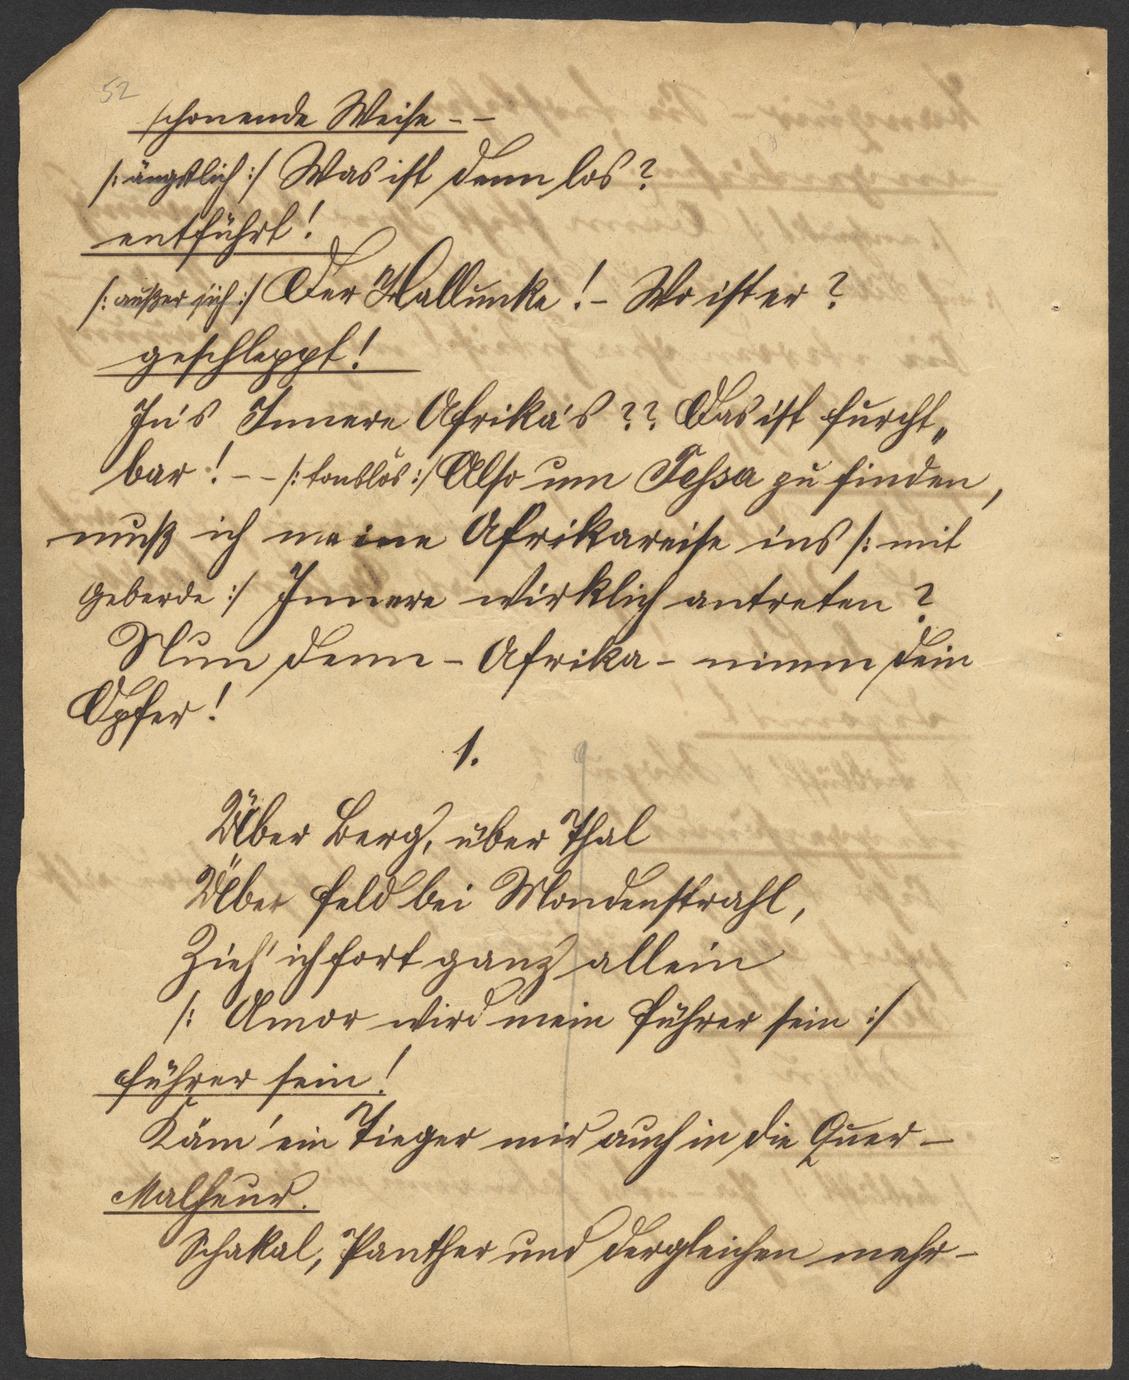 52
schonende Weise - -
/: ängstlich :/ Was ist denn los?
entführt!
/: außer sich :/ Der Hallunke! - Wo ist er?
geschleppt!
In's Innere Afrika's?? Das ist furcht„
bar! - - /: tonlos :/ Also um Tessa zu finden,
muß ich meine Afrikareise ins /: mit
Geberde :/ Innere wirklich antreten?
Nun denn - Afrika - nimm dein
Opfer!
1.
Über Berg, über Thal
Über Feld bei Mondenstrahl,
Zieh' ich fort ganz allein
/: Amor wird mein Führer sein :/
Führer sein!
Käm' ein Tieger mir auch in die Quer -
Malheur.
Schakal, Panther und dergleichen mehr -